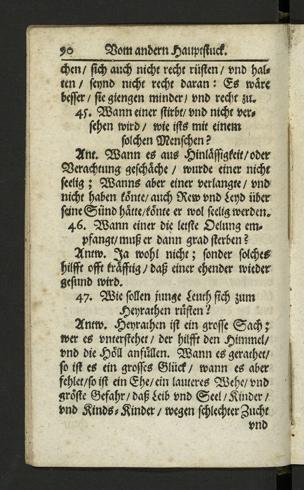 90 Vom andern Hauptstuck.
chen / sich auch nicht recht rüsten / vnd hal-
ten / seynd nicht recht daran: Es wäre
besser / sie giengen minder / vnd recht zu.
45. Wann einer stirbt / vnd nicht ver-
sehen wird / wie ists mit einem
solchen Menschen?
Ant. Wann es aus Hinlässigkeit / oder
Verachtung geschäche / wurde einer nicht
seelig; Wanns aber einer verlangte / vnd
nicht haben könte / auch Rew vnd Leyd über
seine Sünd hätte / könte er wol seelig werden.
46. Wann einer die letste Oelung em-
pfangt / muß er dann grad sterben?
Antw. Ja wohl nicht; sonder solches
hilfft offt kräfftig / daß einer ehender wieder
gesund wird.
47. Wie sollen junge Leuth sich zum
Heyrathen rüsten?
Antw. Heyrathen ist ein grosse Sach;
wer es vnterstehet / der hilfft den Himmel /
vnd die Höll anfüllen. Wann es gerathet /
so ist es ein grosses Glück / wann es aber
fehlet / so ist ein Ehe / ein lauteres Wehe / vnd
gröste Gefahr / daß Leib vnd Seel / Kinder /
vnd Kinds-Kinder / wegen schlechter Zucht
vnd